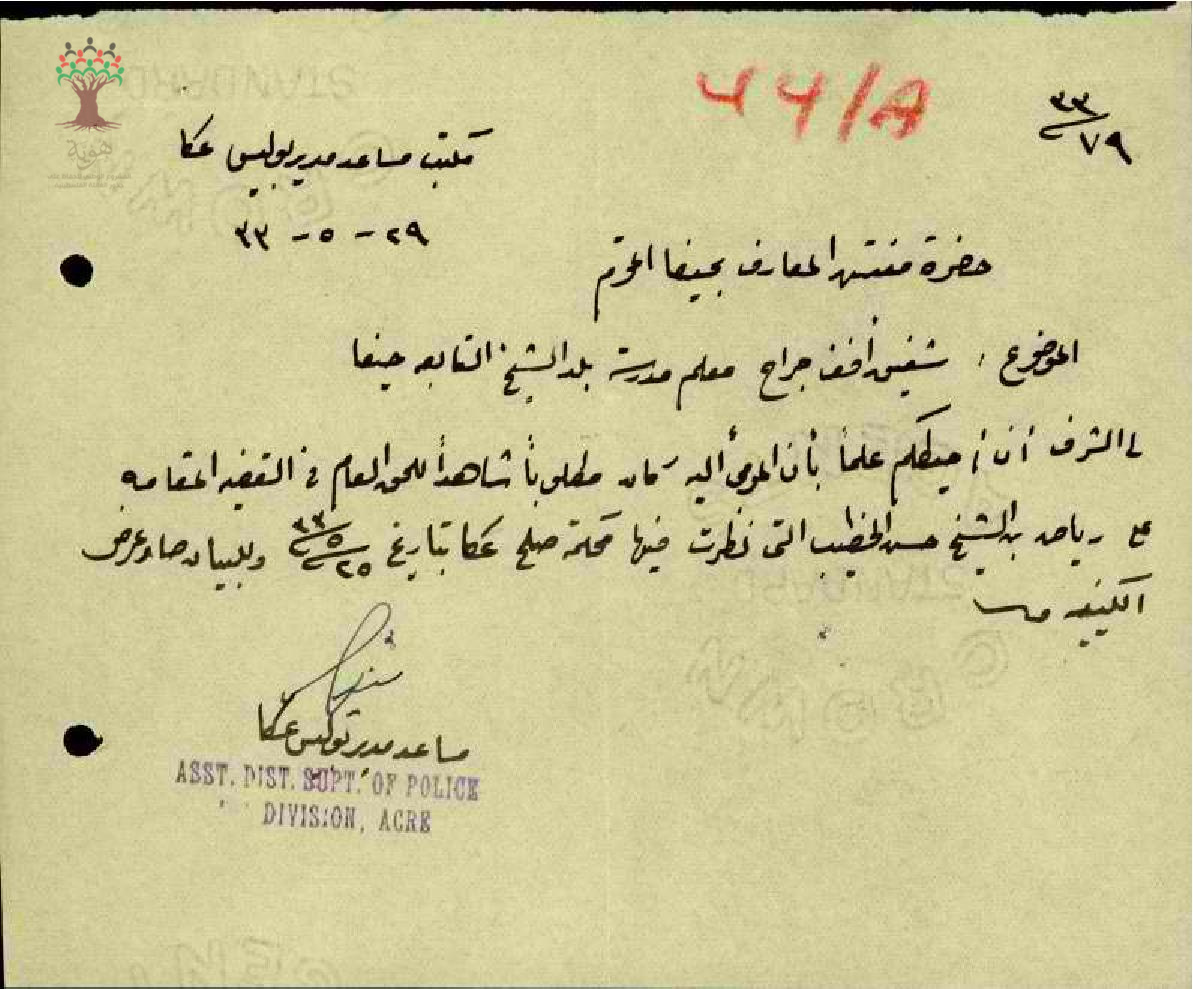 44/A
٣٣
٧٩
هوية
مكتب مساعد مدير بوليس عكا
٢٩ - ٥ - ٣٣
حضرة مفتش المعارف بحيفا المحترم
الموضوع : شفيق أفندي جراح معلم مدرسة بلد الشيخ التابعه حيفا
لي الشرف أن أحيطكم علماً بأن المومأ اليه كان مطلوباً شاهداً للحق العام في القضيه المقامه
على رياض بن الشيخ حسن الخطيب التي نظرت فيها محكمة صلح عكا بتاريخ ٢٥/٥/٣٣ وللبيان صار عرض
الكيفيه
مساعد مدير بوليس عكا
ASST. DIST. SUPT. OF POLICE
DIVISION, ACRE